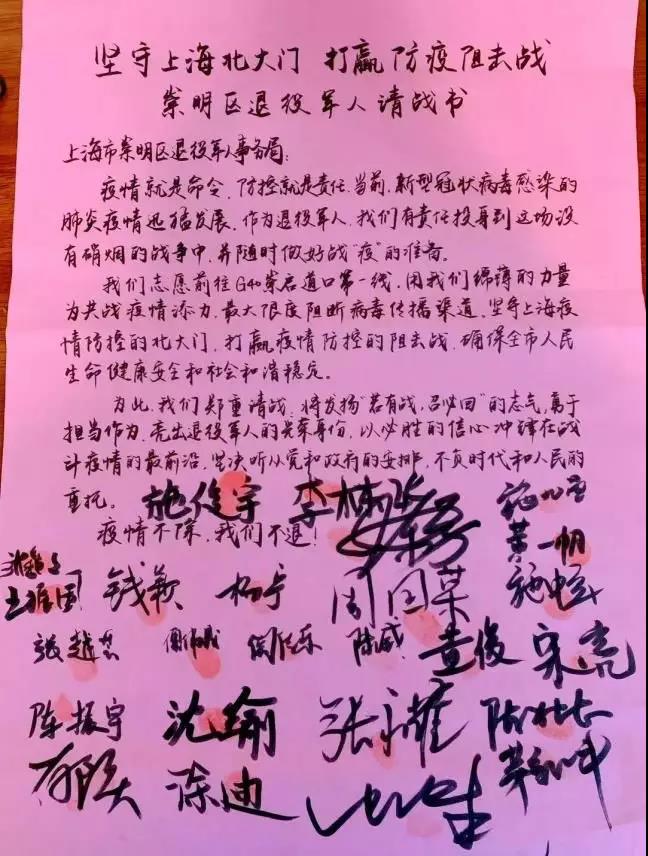 坚守上海北大门 打赢防疫阻击战
崇明区退役军人请战书
上海市崇明区退役军人事务局:
疫情就是命令,防控就是责任.当前,新型冠状病毒感染的
肺炎疫情迅猛发展,作为退役军人,我们有责任投身到这场没
有硝烟的战争中,并随时做好战"疫"的准备。
我们志愿前往G40崇启道口第一线,用我们绵薄的力量
为共战疫情添力,最大限度阻断病毒传播渠道,坚守上海疫
情防控的北大门,打赢疫情防控的阻击战,确保全市人民
生命健康安全和社会和谐稳定。
为此,我们郑重请战,将发扬"若有战,召必回"的志气,勇于
担当作为,亮出退役军人的光荣身份,以必胜的信心冲锋在战
斗疫情的最前沿,坚决听从党和政府的安排,不负时代和人民的
重托。
疫情不除,我们不退!
施俊宇 李
黄一帆
钱 杨宁 周国荣 施
张越 陈威 黄俊 宋亮
陈振宇 沈瑜 张
涂迪